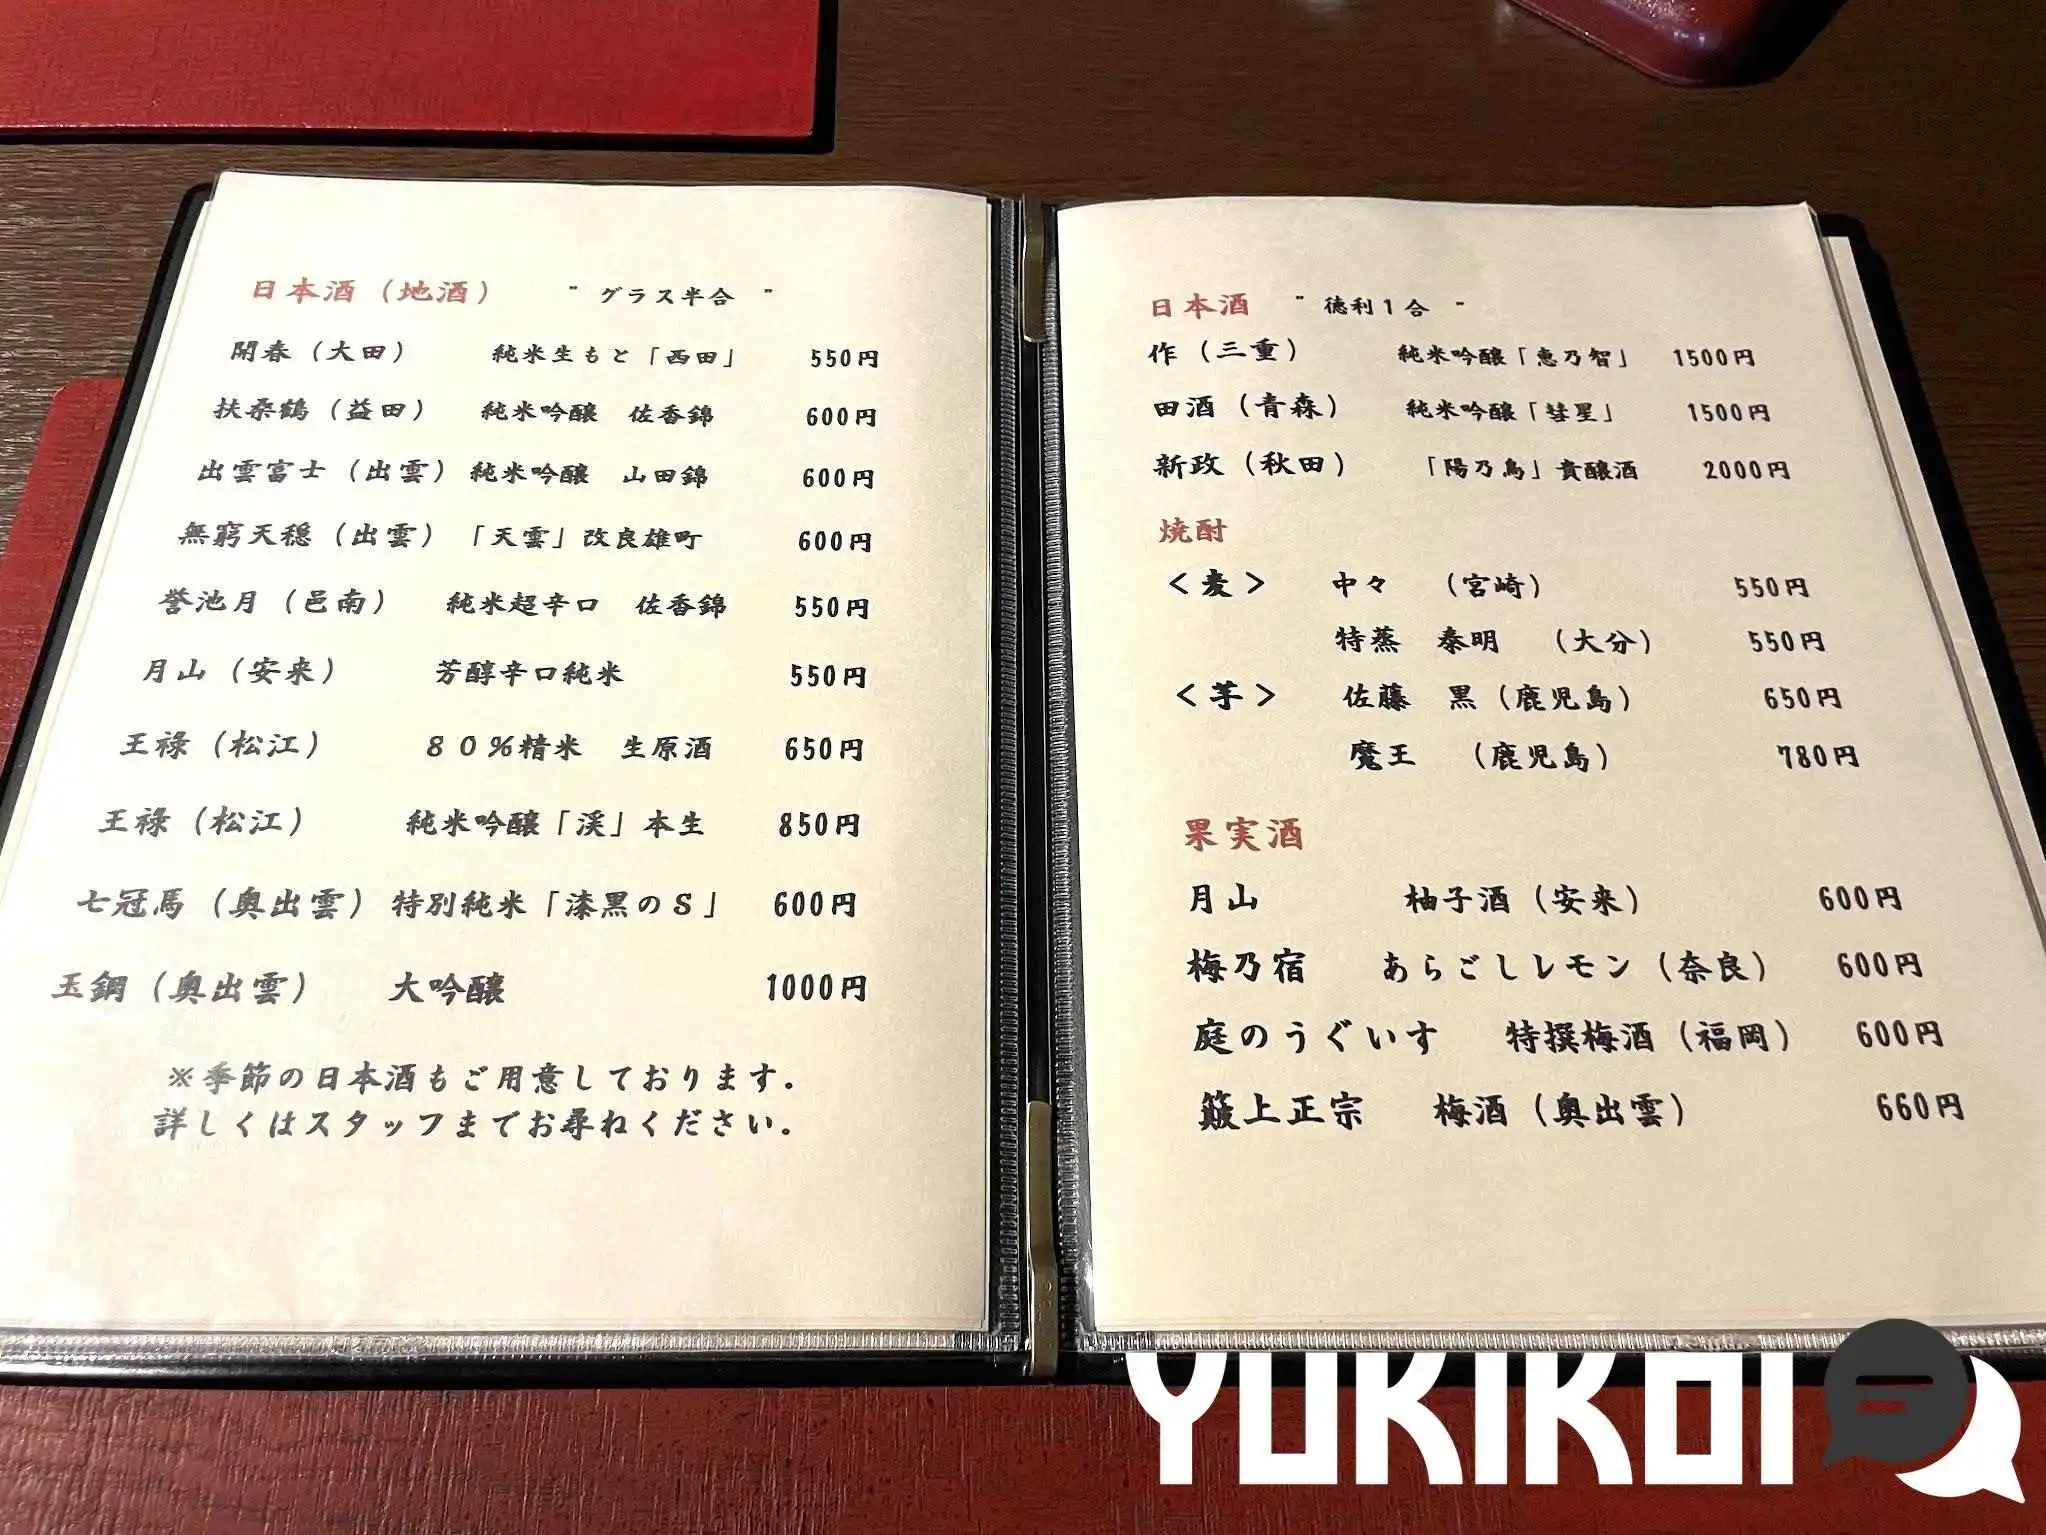 日本酒（地酒） "グラス半合"
開春（大田） 純米生もと「西田」 550円
扶桑鶴（益田） 純米吟醸 佐香錦 600円
出雲富士（出雲） 純米吟醸 山田錦 600円
無窮天穏（出雲） 「天雲」改良雄町 600円
誉池月（邑南） 純米超辛口 佐香錦 550円
月山（安来） 芳醇辛口純米 550円
王祿（松江） ８０％精米 生原酒 650円
王祿（松江） 純米吟醸「渓」本生 850円
七冠馬（奥出雲） 特別純米「漆黒のＳ」 600円
玉鋼（奥出雲） 大吟醸 1000円
※季節の日本酒もご用意しております。
詳しくはスタッフまでお尋ねください。
日本酒 "徳利１合"
作（三重） 純米吟醸「恵乃智」 1500円
田酒（青森） 純米吟醸「彗星」 1500円
新政（秋田） 「陽乃鳥」貴醸酒 2000円
焼酎
＜麦＞ 中々 （宮崎） 550円
特蒸 泰明 （大分） 550円
＜芋＞ 佐藤 黒（鹿児島） 650円
魔王 （鹿児島） 780円
果実酒
月山 柚子酒（安来） 600円
梅乃宿 あらごしレモン（奈良） 600円
庭のうぐいす 特撰梅酒（福岡） 600円
簸上正宗 梅酒（奥出雲） 660円
YUKIKOI